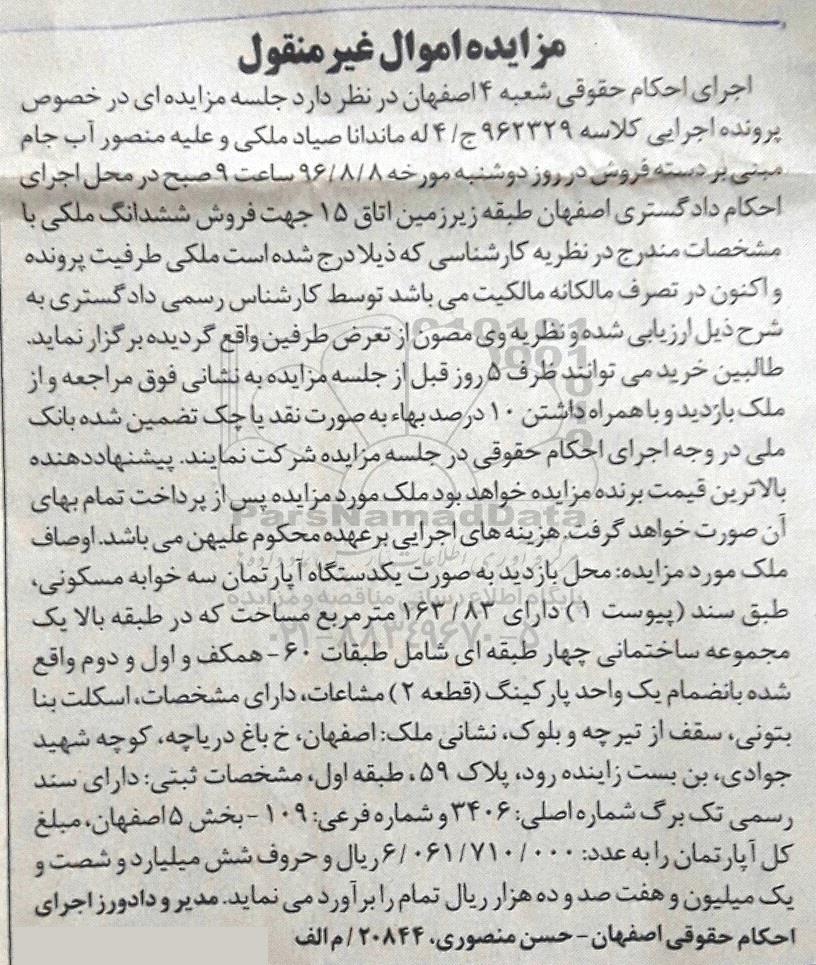 مزایده اموال غیر منقول
اجرای احکام حقوقی شعبه ۴ اصفهان در نظر دارد جلسه مزایده ای در خصوص
پرونده اجرایی کلاسه ۹۶۲۳۲۹ ج/۴ له ماندانا صیاد ملکی و علیه منصور آب جام
مبنی بر دسته فروش در روز دوشنبه مورخه ۹۶/۸/۸ ساعت ۹ صبح در محل اجرای
احکام دادگستری اصفهان طبقه زیرزمین اتاق ۱۵ جهت فروش ششدانگ ملکی با
مشخصات مندرج در نظریه کارشناسی که ذیلا درج شده است ملکی طرفیت پرونده
و اکنون در تصرف مالکانه مالکیت می باشد توسط کارشناس رسمی دادگستری به
شرح ذیل ارزیابی شده و نظریه وی مصون از تعرض طرفین واقع گردیده برگزار نماید.
طالبین خرید می توانند ظرف ۵ روز قبل از جلسه مزایده به نشانی فوق مراجعه و از
ملک بازدید و با همراه داشتن ۱۰ درصد بهاء به صورت نقد یا چک تضمین شده بانک
ملی در وجه اجرای احکام حقوقی در جلسه مزایده شرکت نمایند. پیشنهاددهنده
بالاترین قیمت برنده مزایده خواهد بود ملک مورد مزایده پس از پرداخت تمام بهای
آن صورت خواهد گرفت. هزینه های اجرایی بر عهده محکوم علیهن می باشد. اوصاف
ملک مورد مزایده: محل بازدید به صورت یکدستگاه آپارتمان سه خوابه مسکونی،
طبق سند (پیوست ۱) دارای ۱۶۳/۸۳ مترمربع مساحت که در طبقه بالا یک
مجموعه ساختمانی چهار طبقه ای شامل طبقات ۶۰- همکف و اول و دوم واقع
شده بانضمام یک واحد پارکینگ (قطعه ۲) مشاعات، دارای مشخصات، اسکلت بنا
بتونی، سقف از تیرچه و بلوک، نشانی ملک: اصفهان، خ باغ دریاچه، کوچه شهید
جوادی، بن بست زاینده رود، پلاک ۵۹، طبقه اول، مشخصات ثبتی: دارای سند
رسمی تک برگ شماره اصلی: ۳۴۰۶ و شماره فرعی: ۱۰۹ - بخش ۵ اصفهان، مبلغ
کل آپارتمان را به عدد: ۶/۰۶۱/۷۱۰/۰۰۰ ریال و حروف شش میلیارد و شصت و
یک میلیون و هفت صد و ده هزار ریال تمام را برآورد می نماید. مدیر و دادورز اجرای
احکام حقوقی اصفهان - حسن منصوری، ۲۰۸۴۴/م الف
ParsNamadData
پایگاه اطلاع رسانی مناقصه و مزایده
۰۲۱-۸۸۳۴۹۶۷۰-۵